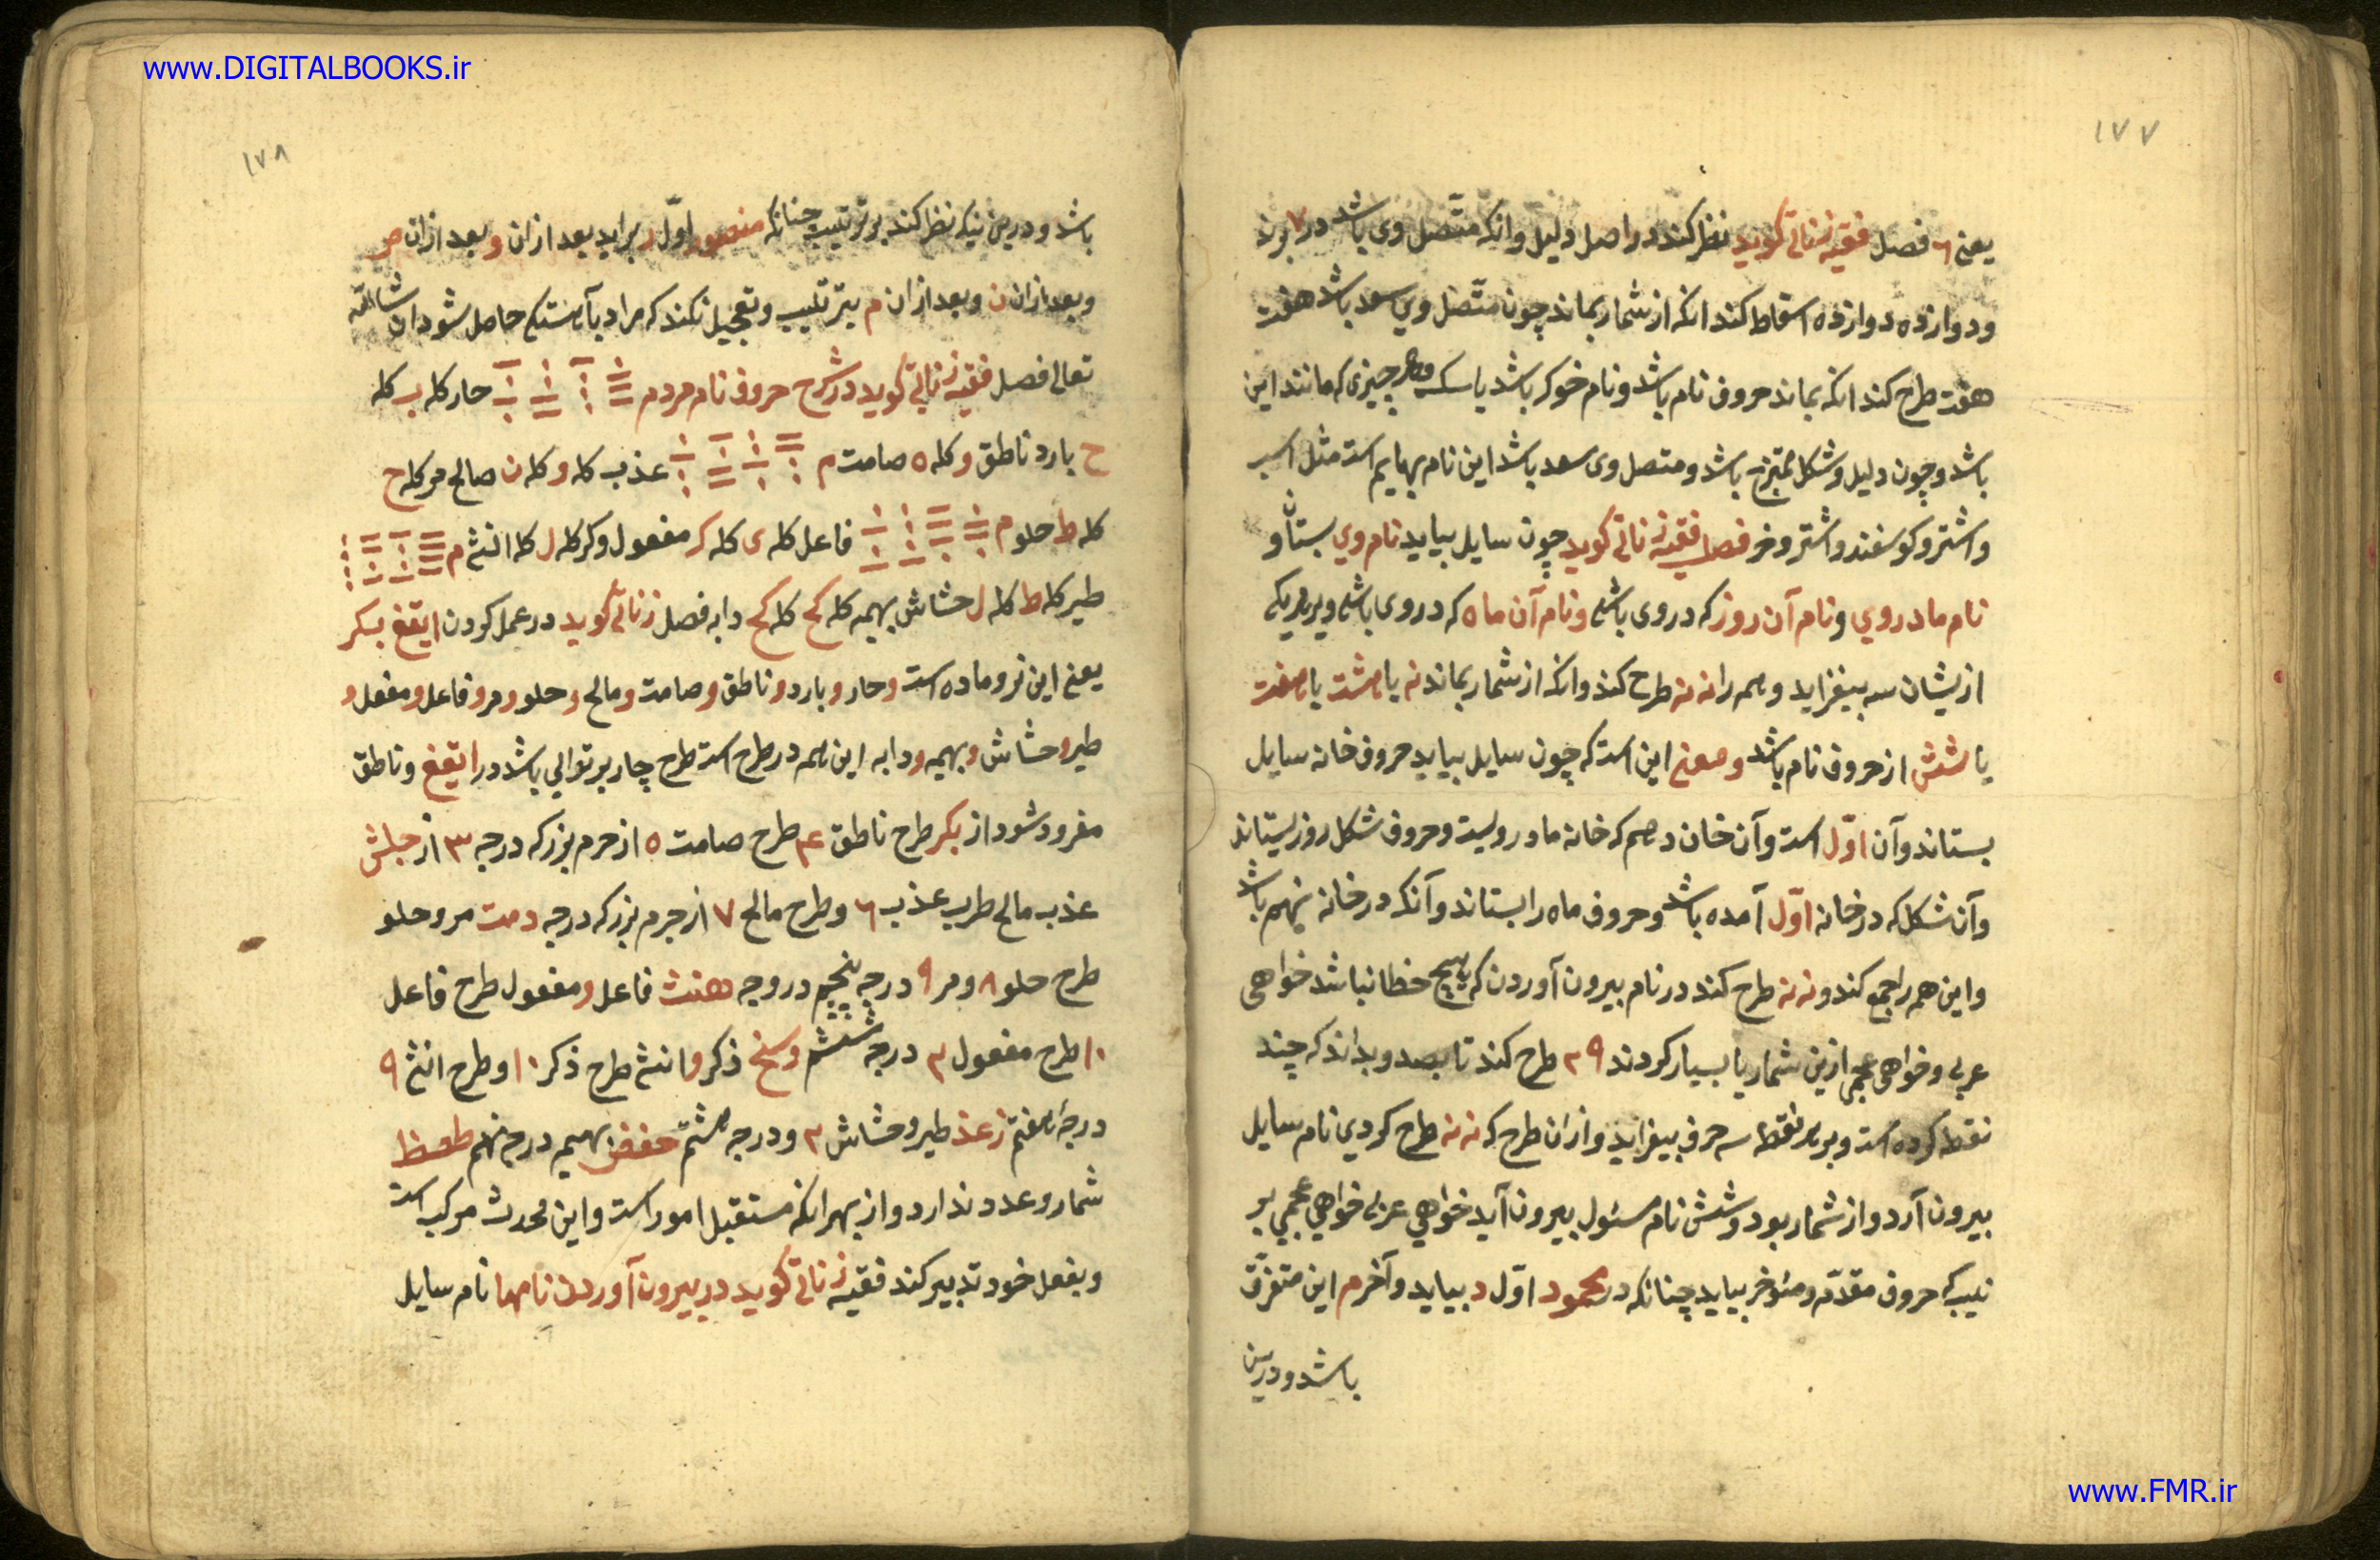 www.DIGITALBOOKS.ir
۱۷۷
یعنی ۶ فصل فقیه زناتی کوید نظر کند در اصل دلیل وانکه متّصل وی باشد در ۷ برند
ودوازده دوازده اسقاط کند انکه از شمار بماند چون متّصل وي سعد باشد هفت
هفت طرح کند انکه بماند حروف نام باشد ونام خوکر باشد یا سک وهر چیزی که مانند این
باشد وچون دلیل وشکل ممتزج باشد ومتصل وی سعد باشد این نام بهایم است مثل اسب
واشتر وکوسفند واشتر وخر فصل فقیه زناتی کوید چون سایل بیاید نام وي بستان و
نام مادر وي ونام آن روز که در وی باشی ونام آن ماه که در وی باشی وبر هر یکی
ازیشان سه بیفزاید وهمه را نه نه طرح کند وانکه از شمار بماند نه یا هشت یا هفت
یا شش از حروف نام باشد ومعنی این است که چون سایل بیاید حروف خانه سایل
بستاند وآن اوّل است وآن خان دهم که خانه مادر ویست وحروف شکل روز بستاند
وآن شکل که در خانه اوّل آمده باشد وحروف ماه را بستاند وآنکه در خانه نهم باشد
واین همه را جمع کند ونه نه طرح کند در نام بیرون آوردن که هیچ خطا نباشد خواهی
عربی وخواهی عجمی ازین شمار یا بسیار کردند ۲۹ طرح کند تا بصد وبداند که چند
نقطه کرده است وبر هر نقطه سه حرف بیفزاید وازان طرح که نه نه طرح کردي نام سایل
بیرون آرد واز شمار بود وشش نام مسئول بیرون آید خواهي عربی خواهي عجمي بر
تیب که حروف مقدّم ومئوخر بیاید چنانکه در محمود اوّل د بیاید وآخر م این متفرّق
باشد ودرین
۱۷۸
باشد ودرین نیکه نظر کند بر ترتیب چنانکه منصور اوّل ر براید بعد ازان و بعد ازان ص
وبعد ازان ن وبعد ازان م بترتیب وتعجیل نکند که مراد بآهستکی حاصل شود ان شاالله
تعالی فصل فقیه زناتی کوید در شرح حروف نام مردم حار کله ب کله
ح بارد ناطق و کله ه صامت م عذب کله و کله ن صالح مر کله ح
کله ط حلو م فاعل کله ی کله ک مفعول وکر کله ل کله انثی م
طیر کله ط کله ل حشاش بهیمه کله کج کله کج دابه فصل زناتی کوید در عمل کردن ایقغ بکر
یعنی این نر وماده است وحار وبارد وناطق وصامت ومالح وحلو ومر وفاعل ومفعل و
طیر وحشاش وبهیمه ودابه این همه در طرح است طرح چار بر توالي باشد در ایقغ وناطق
مفرود شود از بکر طرح ناطق ۴ طرح صامت ۵ از حرم بزرکه درجه ۳ از جلش
عذب مالح طرب عذب ۶ وطرح مالح ۷ از جرم بزرکه درجه دمت مر وحلو
طرح حلو ۸ ومر ۹ درجه پنجم در وجه هنث فاعل ومفعول طرح فاعل
۱۰ طرح مفعول ۲ درجه ششم وسخ ذکر وانثی طرح ذکر ۱۰ وطرح انثی ۹
درجۀ هفتم زعذ طیر وحشاش ۲ ودرجه هشتم حفض بهیمه درجه نهم طصظ
شمار وعدد ندارد واز بهر انکه مستقبل امور است واین محدث مرکب است
وبفعل خود تدبیر کند فقیه زناتی کوید در بیرون آوردن نامها نام سایل
www.FMR.ir